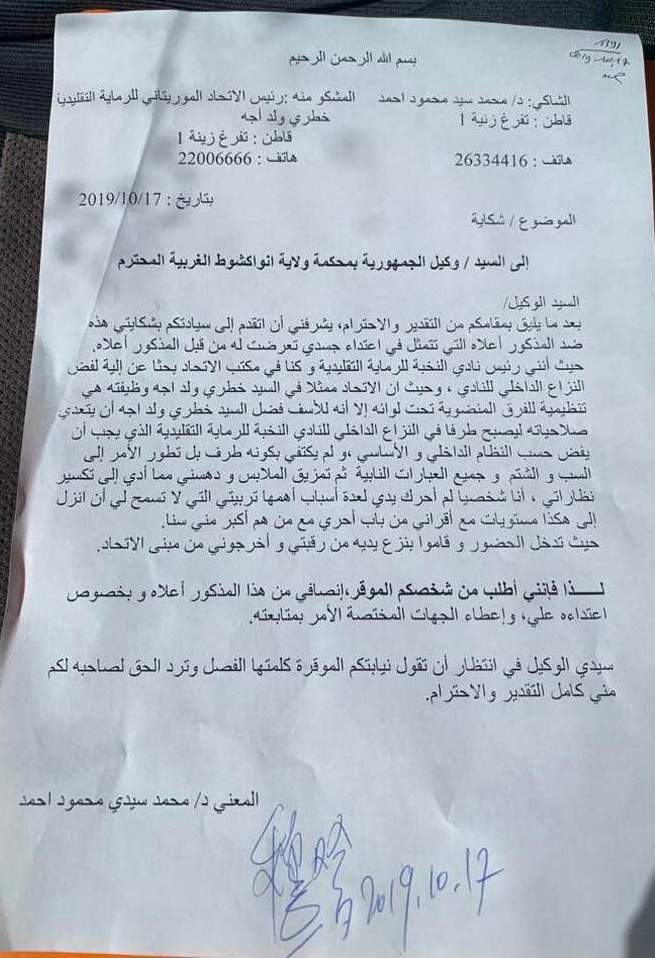 1391
2019.10.17
بسم الله الرحمن الرحيم
الشاكي: د/ محمد سيد محمود احمد
قاطن : تفرغ زنية 1
هاتف : 26334416
المشكو منه :رئيس الاتحاد الموريتاني للرماية التقليدية
خطري ولد أجه
قاطن : تفرغ زينة 1
هاتف : 22006666
بتاريخ : 2019/10/17
الموضوع / شكاية
إلى السيد / وكيل الجمهورية بمحكمة ولاية انواكشوط الغربية المحترم
السيد الوكيل/
بعد ما يليق بمقامكم من التقدير والاحترام، يشرفني أن اتقدم إلى سيادتكم بشكايتي هذه
ضد المذكور أعلاه التي تتمثل في اعتداء جسدي تعرضت له من قبل المذكور أعلاه.
حيث أنني رئيس نادي النخبة للرماية التقليدية و كنا في مكتب الاتحاد بحثا عن إلية لفض
النزاع الداخلي للنادي ، وحيث ان الاتحاد ممثلا في السيد خطري ولد اجه وظيفته هي
تنظيمية للفرق المنضوية تحت لوائه إلا أنه للأسف فضل السيد خطري ولد اجه أن يتعدي
صلاحياته ليصبح طرفا في النزاع الداخلي للنادي النخبة للرماية التقليدية الذي يجب أن
يفض حسب النظام الداخلي و الأساسي ،و لم يكتفي بكونه طرف بل تطور الأمر إلى
السب و الشتم و جميع العبارات النابية ثم تمزيق الملابس و دهسني مما أدي إلى تكسير
نظاراتي ، أنا شخصيا لم أحرك يدي لعدة أسباب أهمها تربيتي التي لا تسمح لي أن انزل
إلى هكذا مستويات مع أقراني من باب أحري مع من هم أكبر مني سنا.
حيث تدخل الحضور و قاموا بنزع يديه من رقبتي و أخرجوني من مبنى الاتحاد.
لـــــذا فإنني أطلب من شخصكم الموقر،إنصافي من هذا المذكور أعلاه و بخصوص
اعتداءه علي، وإعطاء الجهات المختصة الأمر بمتابعته.
سيدي الوكيل في انتظار أن تقول نيابتكم الموقرة كلمتها الفصل وترد الحق لصاحبه لكم
مني كامل التقدير والاحترام.
المعني د/ محمد سيدي محمود احمد
2019.10.17